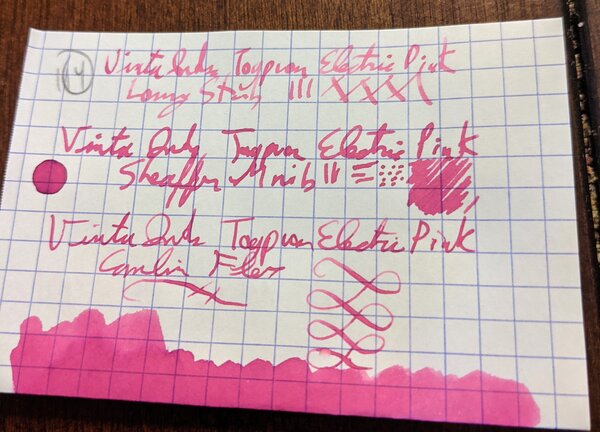 14 Vinta Inks Toypron Electric Pink
Lamy Stub
Vinta Inks Toypron Electric Pink
Sheaffer M nib
Vinta Inks Toypron Electric Pink
Camlin Flex